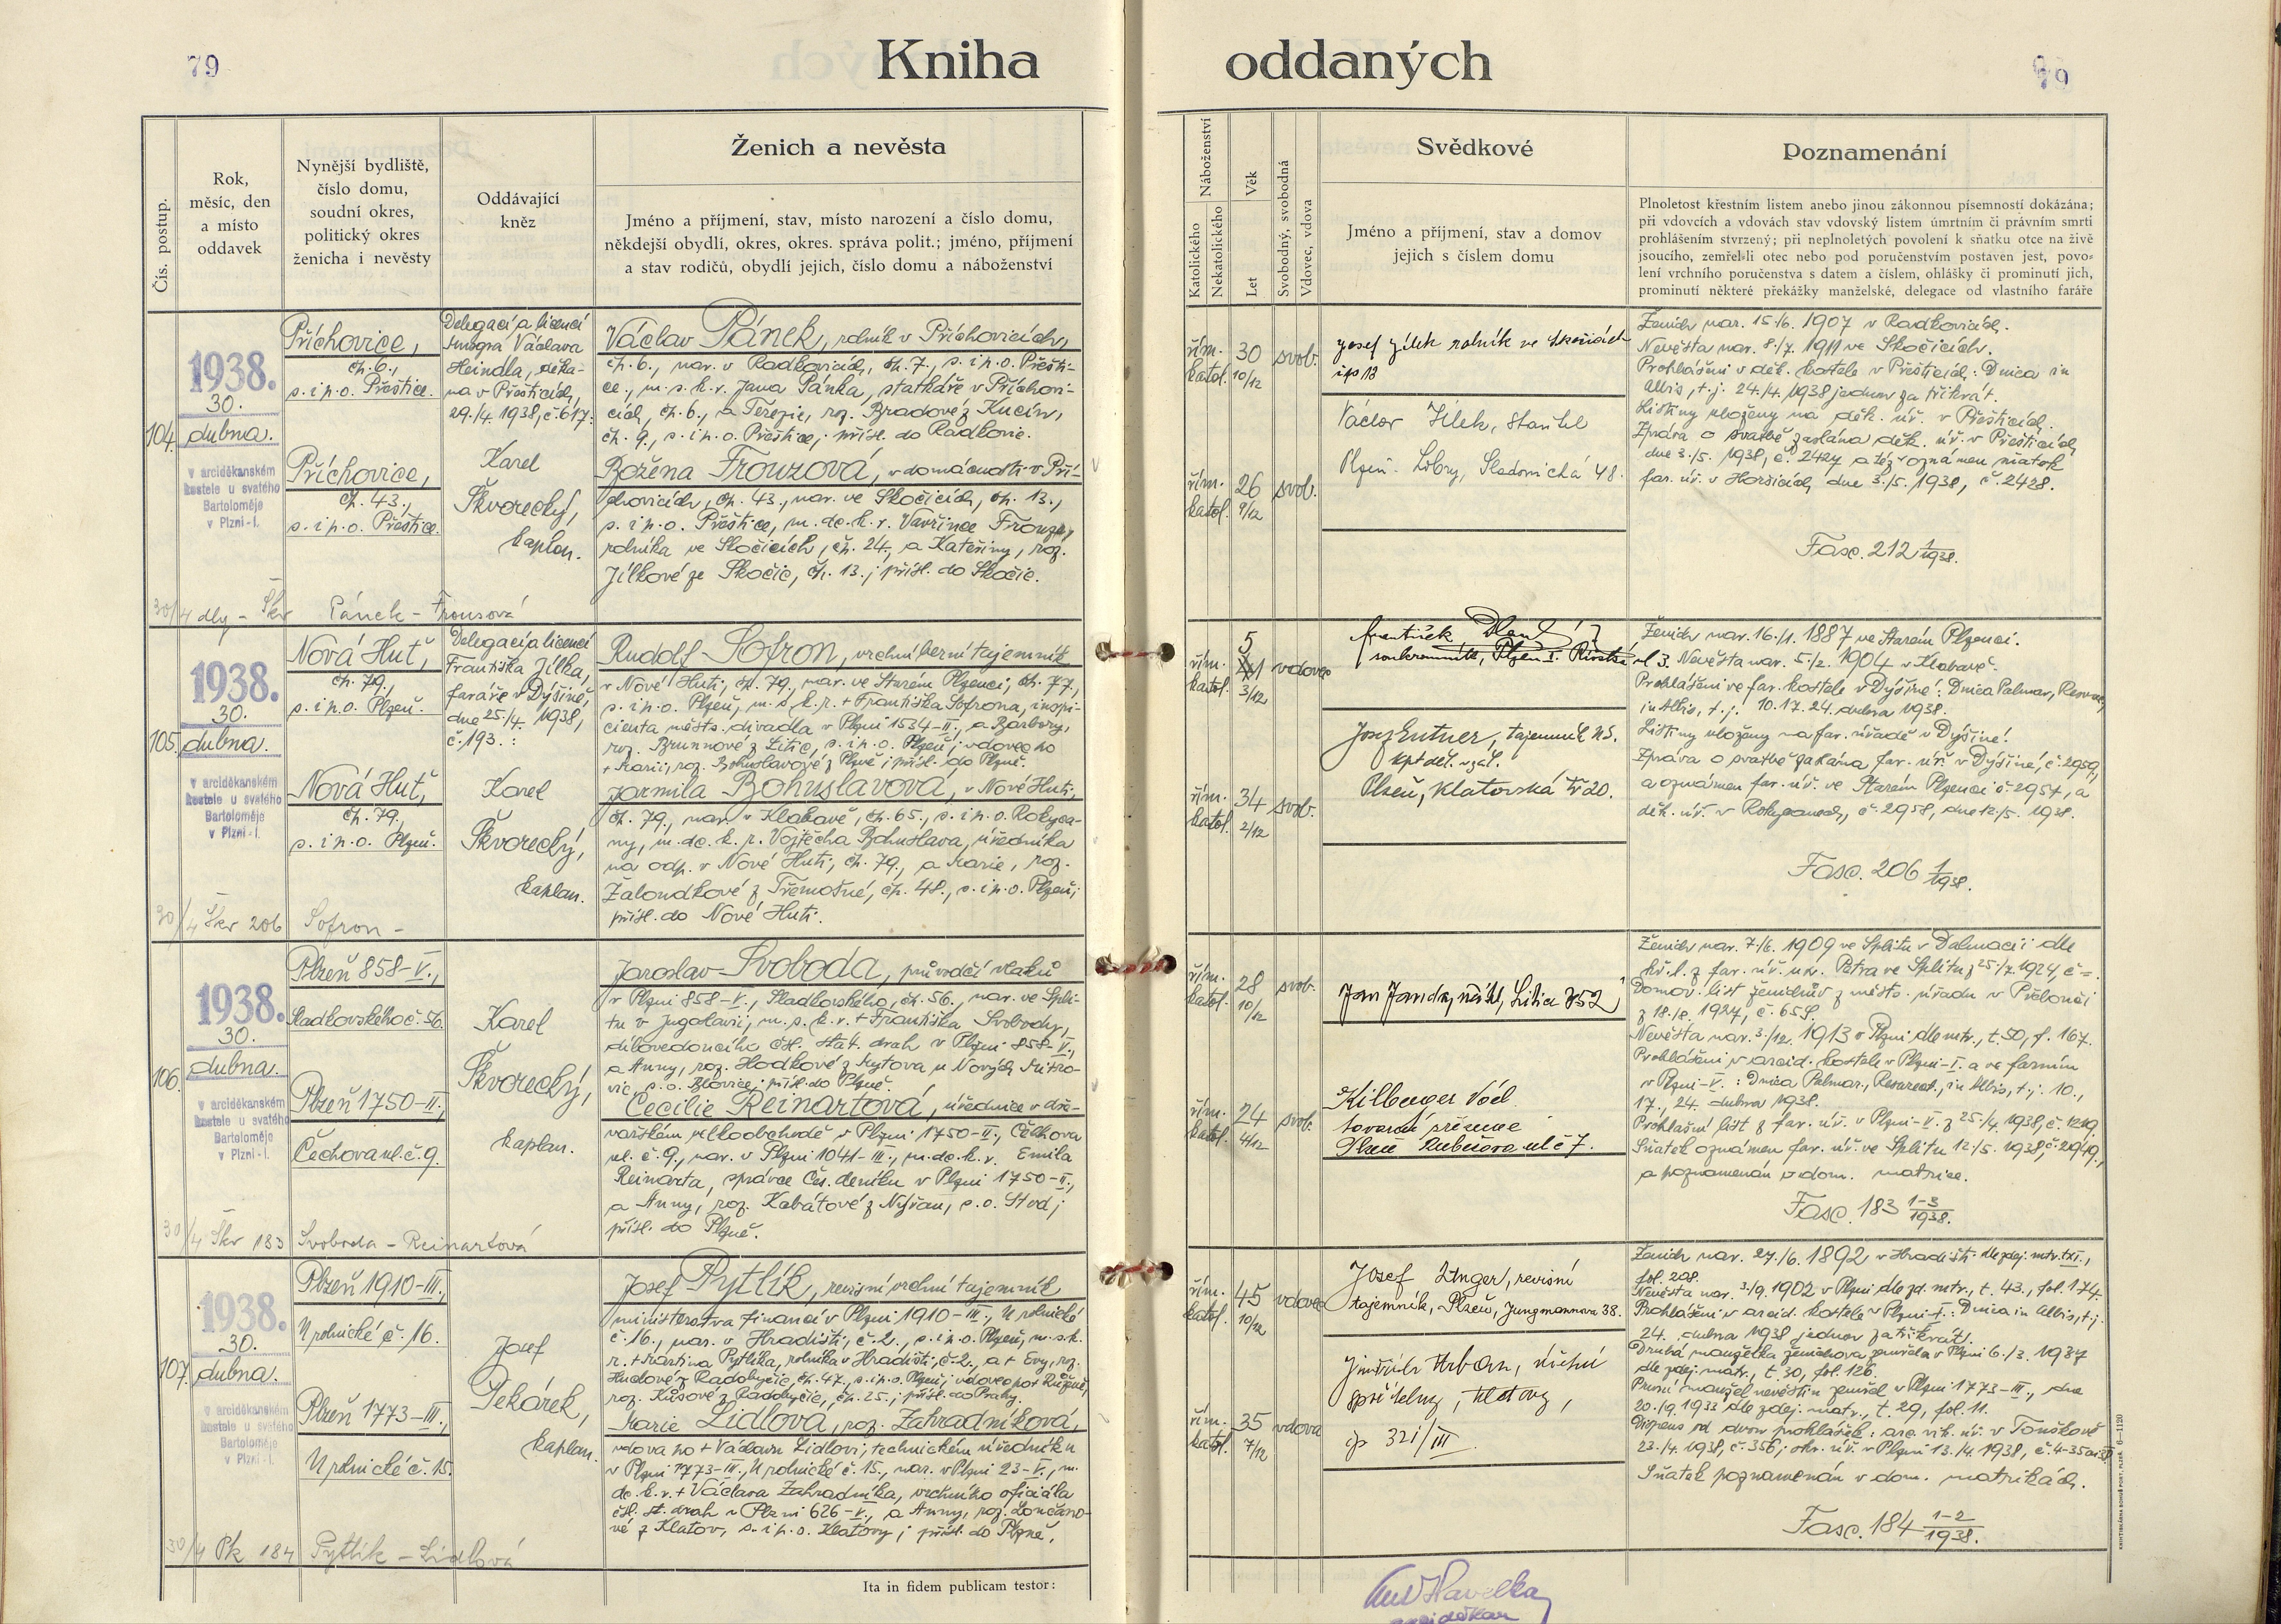 79
Kniha
oddaných
79
Čís. postup.
Rok,
měsíc, den
a místo
oddavek
Nynější bydliště,
číslo domu,
soudní okres,
politický okres
ženicha i nevěsty
Oddávající
kněz
Ženich a nevěsta
Jméno a příjmení, stav, místo narození a číslo domu,
někdejší obydlí, okres, okres. správa polit.; jméno, příjmení
a stav rodičů, obydlí jejich, číslo domu a náboženství
Náboženství
Katolického
Nekatolického
Věk
Let
Svobodný, svobodná
Vdovec, vdova
Svědkové
Jméno a příjmení, stav a domov
jejich s číslem domu
Poznamenání
Plnoletost křestním listem anebo jinou zákonnou písemností dokázána;
při vdovcích a vdovách stav vdovský listem úmrtním či právním smrti
prohlášením stvrzený; při neplnoletých povolení k sňatku otce na živě
jsoucího, zemřel-li otec nebo pod poručenstvím postaven jest, povo-
lení vrchního poručenstva s datem a číslem, ohlášky či prominutí jich,
prominutí některé překážky manželské, delegace od vlastního faráře
104.
1938.
30.
dubna.
v arciděkanském
kostele u svatého
Bartoloměje
v Plzni-I.
Příchovice,
čp. 6.,
s. i p. o. Přeštice.
Příchovice,
čp. 43.,
s. i p. o. Přeštice.
Delegací a licencí
Msgra Václava
Heindla, děka-
na v Přešticích,
29./4. 1938, č. 617.
Karel
Škvorecký,
kaplan.
Václav Pánek, rolník v Příchovicích,
čp. 6., nar. v Radkovicích, čp. 7., s. i p. o. Přešti-
ce, m. s. k. r. Jana Pánka, statkáře v Příchovi-
cích, čp. 6., a Terezie, roz. Bradové z Kucín,
čp. 9., s. i p. o. Přeštice; přísl. do Radkovic.
Božena Frouzová, v domácnosti v Pří-
chovicích, čp. 43., nar. ve Skočicích, čp. 13.,
s. i p. o. Přeštice, m. dc. k. r. Vavřince Frouze,
rolníka ve Skočicích, čp. 24., a Kateřiny, roz.
Jílkové ze Skočic, čp. 13.; přísl. do Skočic.
řím.
katol.
30
10/12
svob.
řím.
katol.
26
9/12
svob.
Josef Jílek rolník ve Skočicích
čp 13
Václav Jílek, stavitel
Plzeň - Lobzy, Sladovnická 48.
Ženich nar. 15./6. 1907 v Radkovicích.
Nevěsta nar. 8./7. 1911 ve Skočicích.
Prohlášeni v děk. kostele v Přešticích: Dnica in
Albis, t. j. 24./4. 1938 jednou za třikrát.
Listiny uloženy na děk. úř. v Přešticích.
Zpráva o svatbě zaslána děk. úř. v Přešticích
dne 3./5. 1938, č. 2427 a též oznámen sňatek
far. úř. v Horšicích dne 3./5. 1938, č. 2428.
Fasc. 212 1/1938.
30/4 dly - Škv Pánek - Frousová
105.
1938.
30.
dubna.
v arciděkanském
kostele u svatého
Bartoloměje
v Plzni-I.
Nová Huť,
čp. 79.,
s. i p. o. Plzeň.
Nová Huť,
čp. 79.,
s. i p. o. Plzeň.
Delegací a licencí
Františka Jílka,
faráře v Dýšině,
dne 25./4. 1938,
č. 193.:
Karel
Škvorecký,
kaplan.
Rudolf Sofron, vrchní berní tajemník
v Nové Huti, čp. 79., nar. ve Starém Plzenci, čp. 77.,
s. i p. o. Plzeň, m. s. k. r. + Františka Sofrona, inspi-
cienta městs. divadla v Plzni 1534-II., a Barbory,
roz. Brunnové z Litic, s. i p. o. Plzeň; vdovec po
+ Marii, roz. Bohuslavové z Plzně; přísl. do Plzně.
Jarmila Bohuslavová, v Nové Huti,
čp. 79., nar. v Klabavě, čp. 65., s. i p. o. Rokyca-
ny, m. dc. k. r. Vojtěcha Bohuslava, úředníka
na odp. v Nové Huti, čp. 79., a Marie, roz.
Žaloudkové z Třemošné, čp. 48., s. i p. o. Plzeň;
přísl. do Nové Huti.
řím.
katol.
5
3/12
vdovec
řím.
katol.
34
2/12
svob.
František
soukromník, Plzeň I.
ul 3.
Josef Entner, tajemník
Plzeň, Klatovská tř 20.
Ženich nar. 16./1. 1887 ve Starém Plzenci.
Nevěsta nar. 5./2. 1904 v Klabavě.
Prohlášeni ve far. kostele v Dýšině: Dnica Palmar., Resurr.,
in Albis, t. j. 10. 17. 24. dubna 1938.
Listiny uloženy na far. úřadě v Dýšině.
Zpráva o svatbě zaslána far. úř. v Dýšině, č. 2959,
a oznámen far. úř. ve Starém Plzenci č. 2957, a
děk. úř. v Rokycanech, č. 2958, dne 12./5. 1938.
Fasc. 206 1/1938.
30/4 Škv 206 Sofron -
106.
1938.
30.
dubna.
v arciděkanském
kostele u svatého
Bartoloměje
v Plzni-I.
Plzeň 858-V.,
Sladkovského č. 56.
Plzeň 1750-II.,
Čechova ul. č. 9.
Karel
Škvorecký,
kaplan.
Jaroslav Svoboda, průvodčí vlaků
v Plzni 858-V., Sladkovského, čp. 56., nar. ve Spli-
tu v Jugoslavii, m. s. k. r. + Františka Svobody,
dílovedoucího čsl. stát. drah v Plzni 858-V.,
a Anny, roz. Hodkové z Mytova u Nových Mitro-
vic, s. o. Blovice; přísl. do Plzně.
Cecilie Reinartová, úřednice v dře-
vařském velkoobchodě v Plzni 1750-II., Čechova
ul. č. 9., nar. v Plzni 1041-III., m. dc. k. r. Emila
Reinarta, správce Čes. deníku v Plzni 1750-II.,
a Anny, roz. Kabátové z Nýřan, s. o. Stod;
přísl. do Plzně.
řím.
katol.
28
10/12
svob.
řím.
katol.
24
4/12
svob.
Jan Janda, Litice 352
Kilberger
tovární
Plzeň ul č 7.
Ženich nar. 7./6. 1909 ve Splitu v Dalmacii dle
kř. l. z far. úř. sv. Petra ve Splitu z 25./7. 1924, č =.
Domov. list ženichův z městs. úřadu v
z 18./8. 1927, č. 658.
Nevěsta nar. 3./12. 1913 v Plzni dle mtr., t. 50, f. 167.
Prohlášeni v arcid. kostele v Plzni-I. a ve farním
v Plzni-V.: Dnica Palmar., Resurrect., in Albis, t. j. 10.,
17., 24. dubna 1938.
Prohlašní list z far. úř. v Plzni-V. z 25./4. 1938, č. 1219.
Sňatek oznámen far. úř. ve Splitu 12./5. 1938, č. 2949.,
a poznamenán v dom. matrice.
Fasc. 183 1-3/1938.
30/4 Škv 183 Svoboda - Reinartová
107.
1938.
30.
dubna.
v arciděkanském
kostele u svatého
Bartoloměje
v Plzni-I.
Plzeň 1910-III.,
U rolnické č. 16.
Plzeň 1773-III.,
U rolnické č. 15.
Josef
Pekárek,
kaplan.
Josef Pytlík, revisní vrchní tajemník
ministerstva financí v Plzni 1910-III., U rolnické
č. 16., nar. v Hradišti, č. 2., s. i p. o. Plzeň, m. s. k.
r. + Martina Pytlíka, rolníka v Hradišti, č. 2., a + Evy, roz.
Hudové z Radobyčic, čp. 47., s. i p. o. Plzeň; vdovec po + Růženě,
roz. Kůsové z Radobyčic, čp. 25.; přísl. do Prahy.
Marie Lidlová, roz. Zahradníková,
vdova po + Václavu Lidlovi, technickém úředníku
v Plzni 1773-III., U rolnické č. 15., nar. v Plzni 23-V., m.
dc. k. r. + Václava Zahradníka, vrchního oficiála
čsl. st. drah v Plzni 626-V., a Anny, roz. Lončáno-
vé z Klatov, s. i p. o. Klatovy; přísl. do Plzně.
řím.
katol.
45
10/12
vdovec
řím.
katol.
35
7/12
vdova
Josef Unger, revisní
tajemník, Plzeň, Jungmannova 38.
Jindřich Urban,
Klatovy,
čp 321/III.
Ženich nar. 27./6. 1892 v Hradišti dle zdej. mtr. t. XI.,
fol. 208.
Nevěsta nar. 3./9. 1902 v Plzni dle zd. mtr., t. 43., fol. 174.
Prohlášeni v arcid. kostele v Plzni-I.: Dnica in Albis, t. j.
24. dubna 1938 jednou za třikrát.
Druhá manželka ženichova zemřela v Plzni 6./3. 1937
dle zdej. matr., t. 30, fol. 126.
První manžel nevěstin zemřel v Plzni 1773-III., dne
20./9. 1933 dle zdej. matr., t. 29, fol. 11.
Dispens od dvou prohlášek: arc. vik. úř. v Touškově
23./4. 1938, č. 356; okr. úř. v Plzni 13./4. 1938,
Sňatek poznamenán v dom. matrikách.
Fasc. 184 1-2/1938.
30/4 Pk 184 Pytlík - Lidlová
Ita in fidem publicam testor:
Havelka
arciděkan
KNIHTISKÁRNA BOHUŠ PORT, PLZEŇ. 6-1120